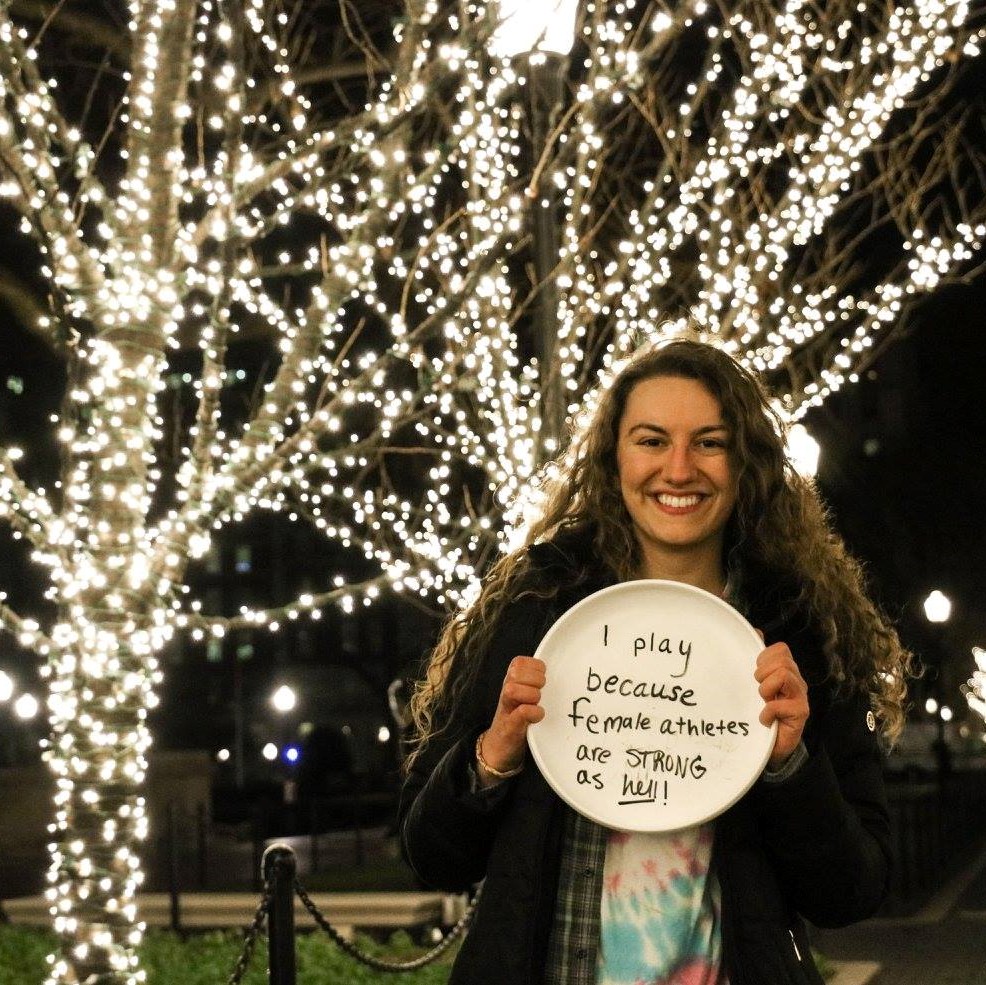 I play
because
female athletes
are STRONG
as hell!